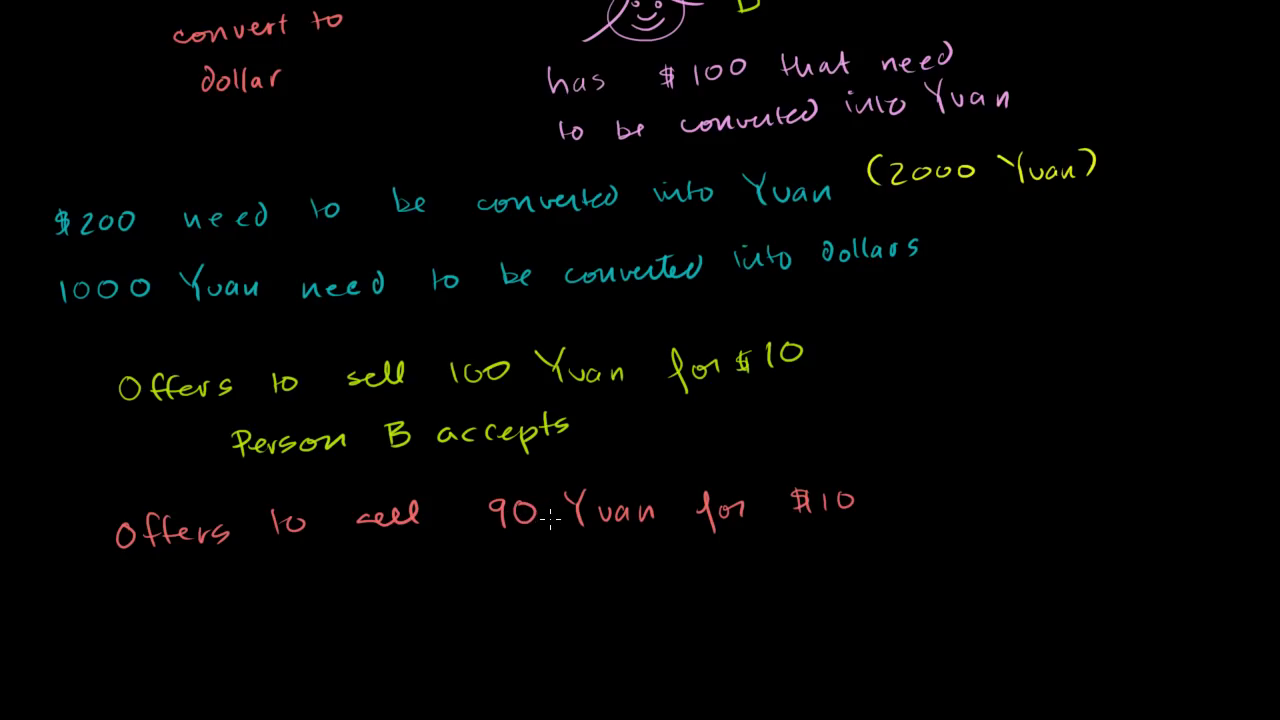 convert to
dollar
has $100 that need
to be converted into Yuan
$200 need to be converted into Yuan (2000 Yuan)
1000 Yuan need to be converted into dollars
Offers to sell 100 Yuan for $10
Person B accepts
Offers to sell 90 Yuan for $10